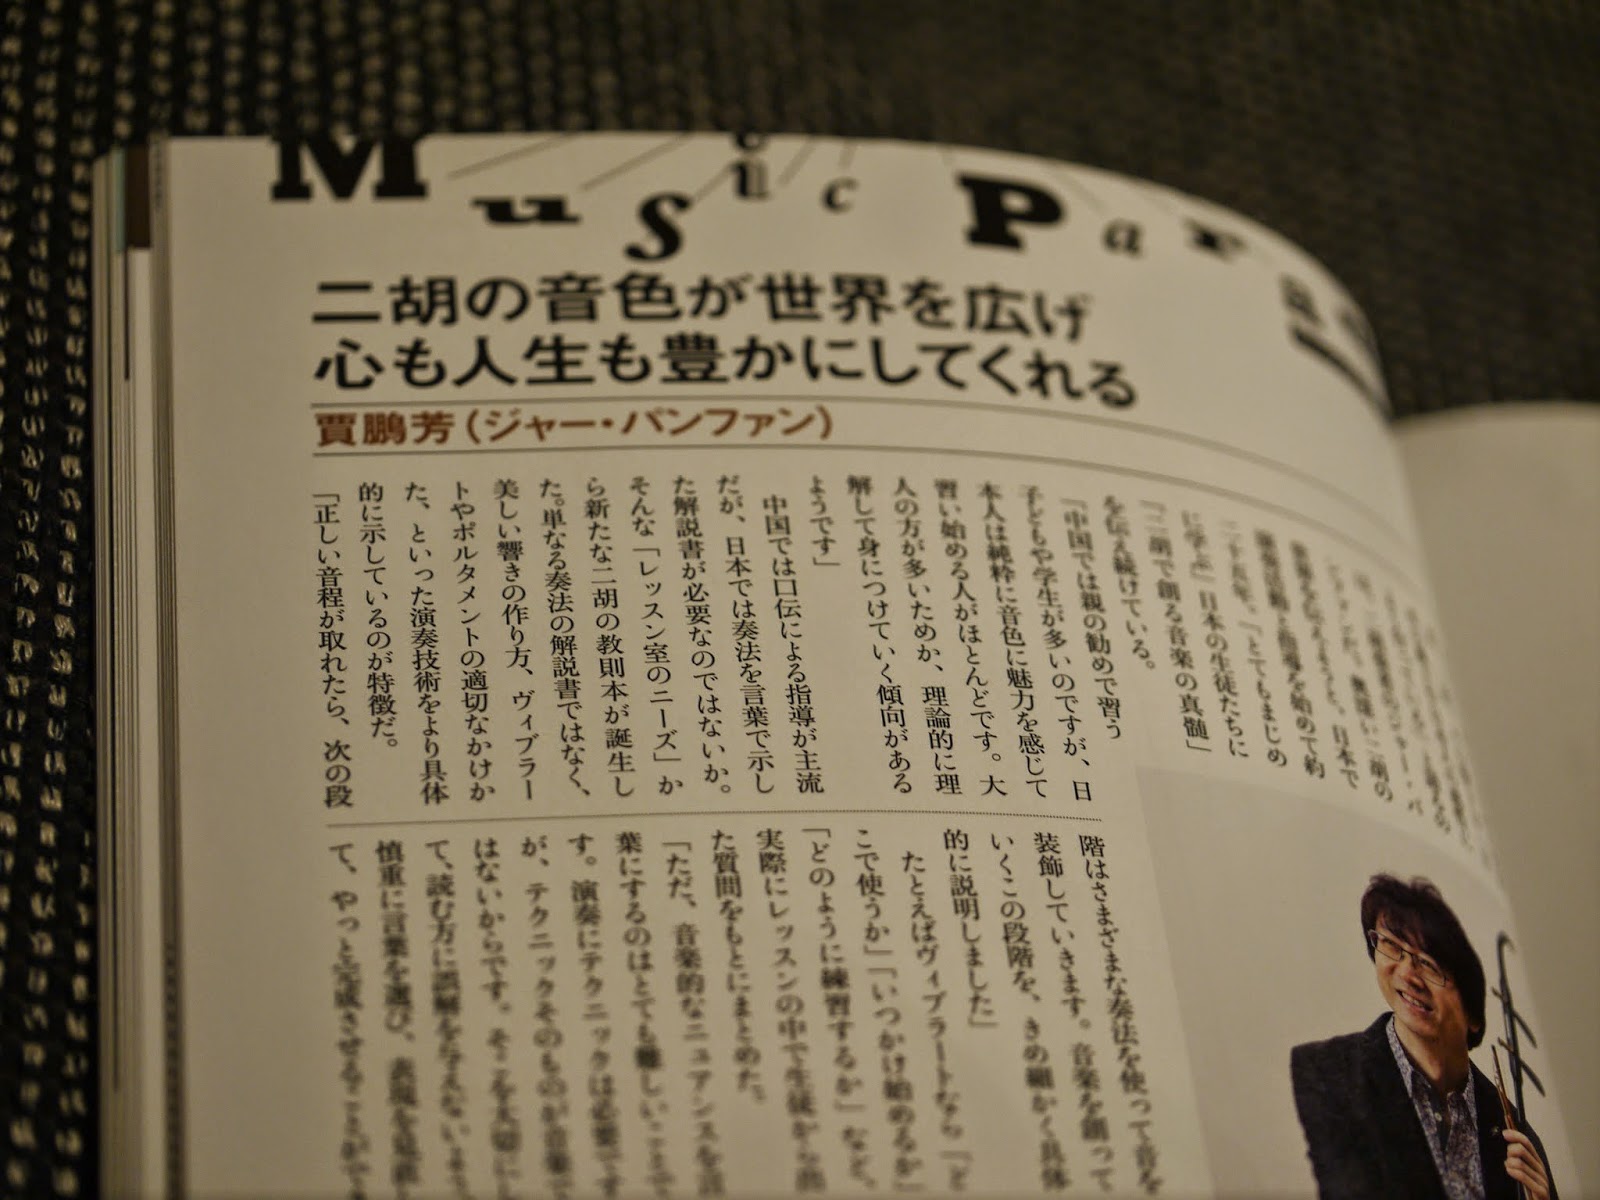 Music Par
二胡の音色が世界を広げ
心も人生も豊かにしてくれる
賈鵬芳(ジャー・パンファン)
二十五年。「とてもまじめ
に学ぶ」日本の生徒たちに
「二胡で創る音楽の真髄」
を伝え続けている。
「中国では親の勧めで習う
子どもや学生が多いのですが、日
本人は純粋に音色に魅力を感じて
習い始める人がほとんどです。大
人の方が多いためか、理論的に理
解して身につけていく傾向がある
ようです」
中国では口伝による指導が主流
だが、日本では奏法を言葉で示し
た解説書が必要なのではないか。
そんな「レッスン室のニーズ」か
ら新たな二胡の教則本が誕生し
た。単なる奏法の解説書ではなく、
美しい響きの作り方、ヴィブラー
トやポルタメントの適切なかけか
た、といった演奏技術をより具体
的に示しているのが特徴だ。
「正しい音程が取れたら、次の段
階はさまざまな奏法を使って音を
装飾していきます。音楽を創って
いくこの段階を、きめ細かく具体
的に説明しました」
たとえばヴィブラートなら「ど
こで使うか」「いつかけ始めるか」
「どのように練習するか」など、
実際にレッスンの中で生徒から出
た質問をもとにまとめた。
「ただ、音楽的なニュアンスを言
葉にするのはとても難しいことで
す。演奏にテクニックは必要です
が、テクニックそのものが音楽で
はないからです。そこを大切にし
て、読む方に誤解を与えないよう
慎重に言葉を選び、表現を
て、やっと完成させることができ